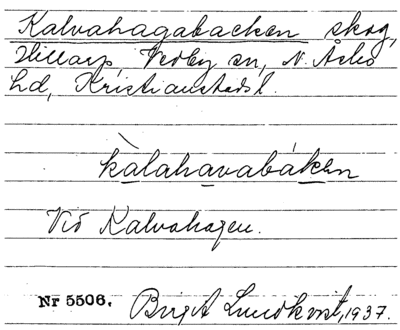 Kalvahagabacken skog,
Hillarp, Vedby sn, N. Åsbo
hd, Kristianstads l.
kàlahavabáken
Vid Kalvahagen.
Nr 5506. Birgit Lundkvist, 1937.